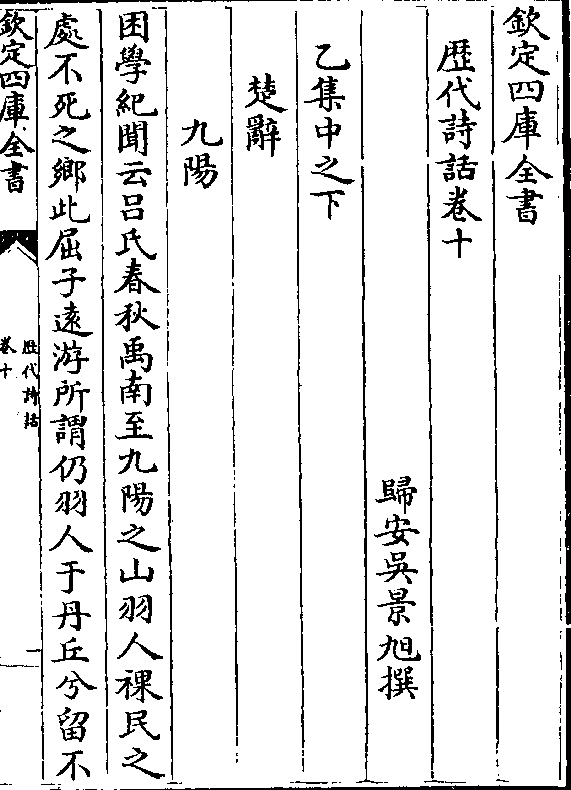 欽定四庫全書
歴代詩話卷十
歸安吳景旭撰
乙集中之下
楚辭
九陽
困學紀聞云吕氏春秋禹南至九陽之山羽人裸民之
處不死之鄉此屈子逺游所謂仍羽人于丹丘兮留不
欽定四庫全書
歴代詩話
卷十
一